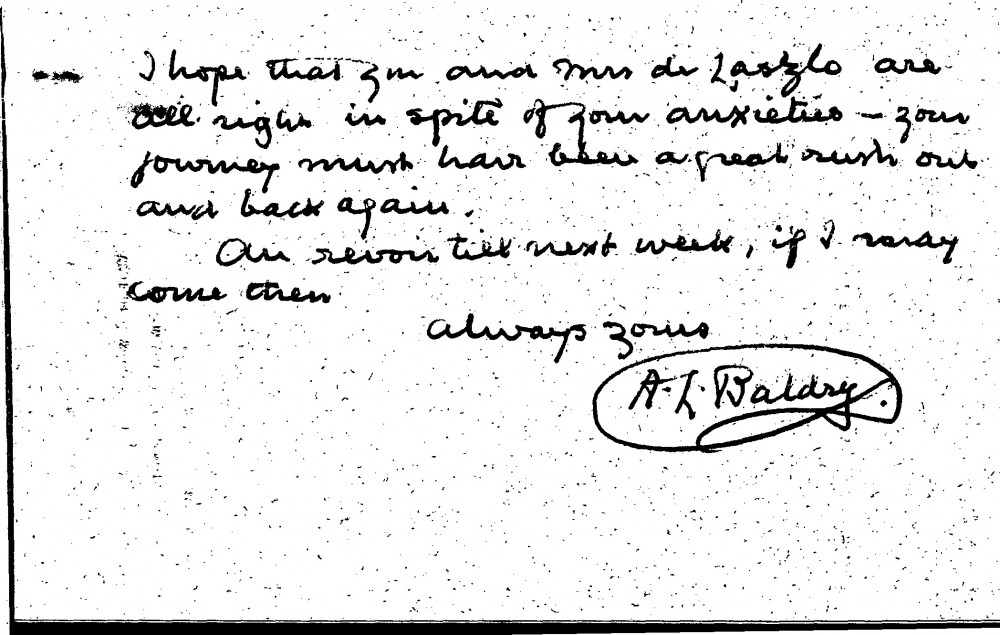 I hope that you and Mrs de László are
all right in spite of your anxieties – your
journey must have been a great rush out
and back again.
Au revoir till next week, if I may
come then
Always yours
A. L. Baldry.